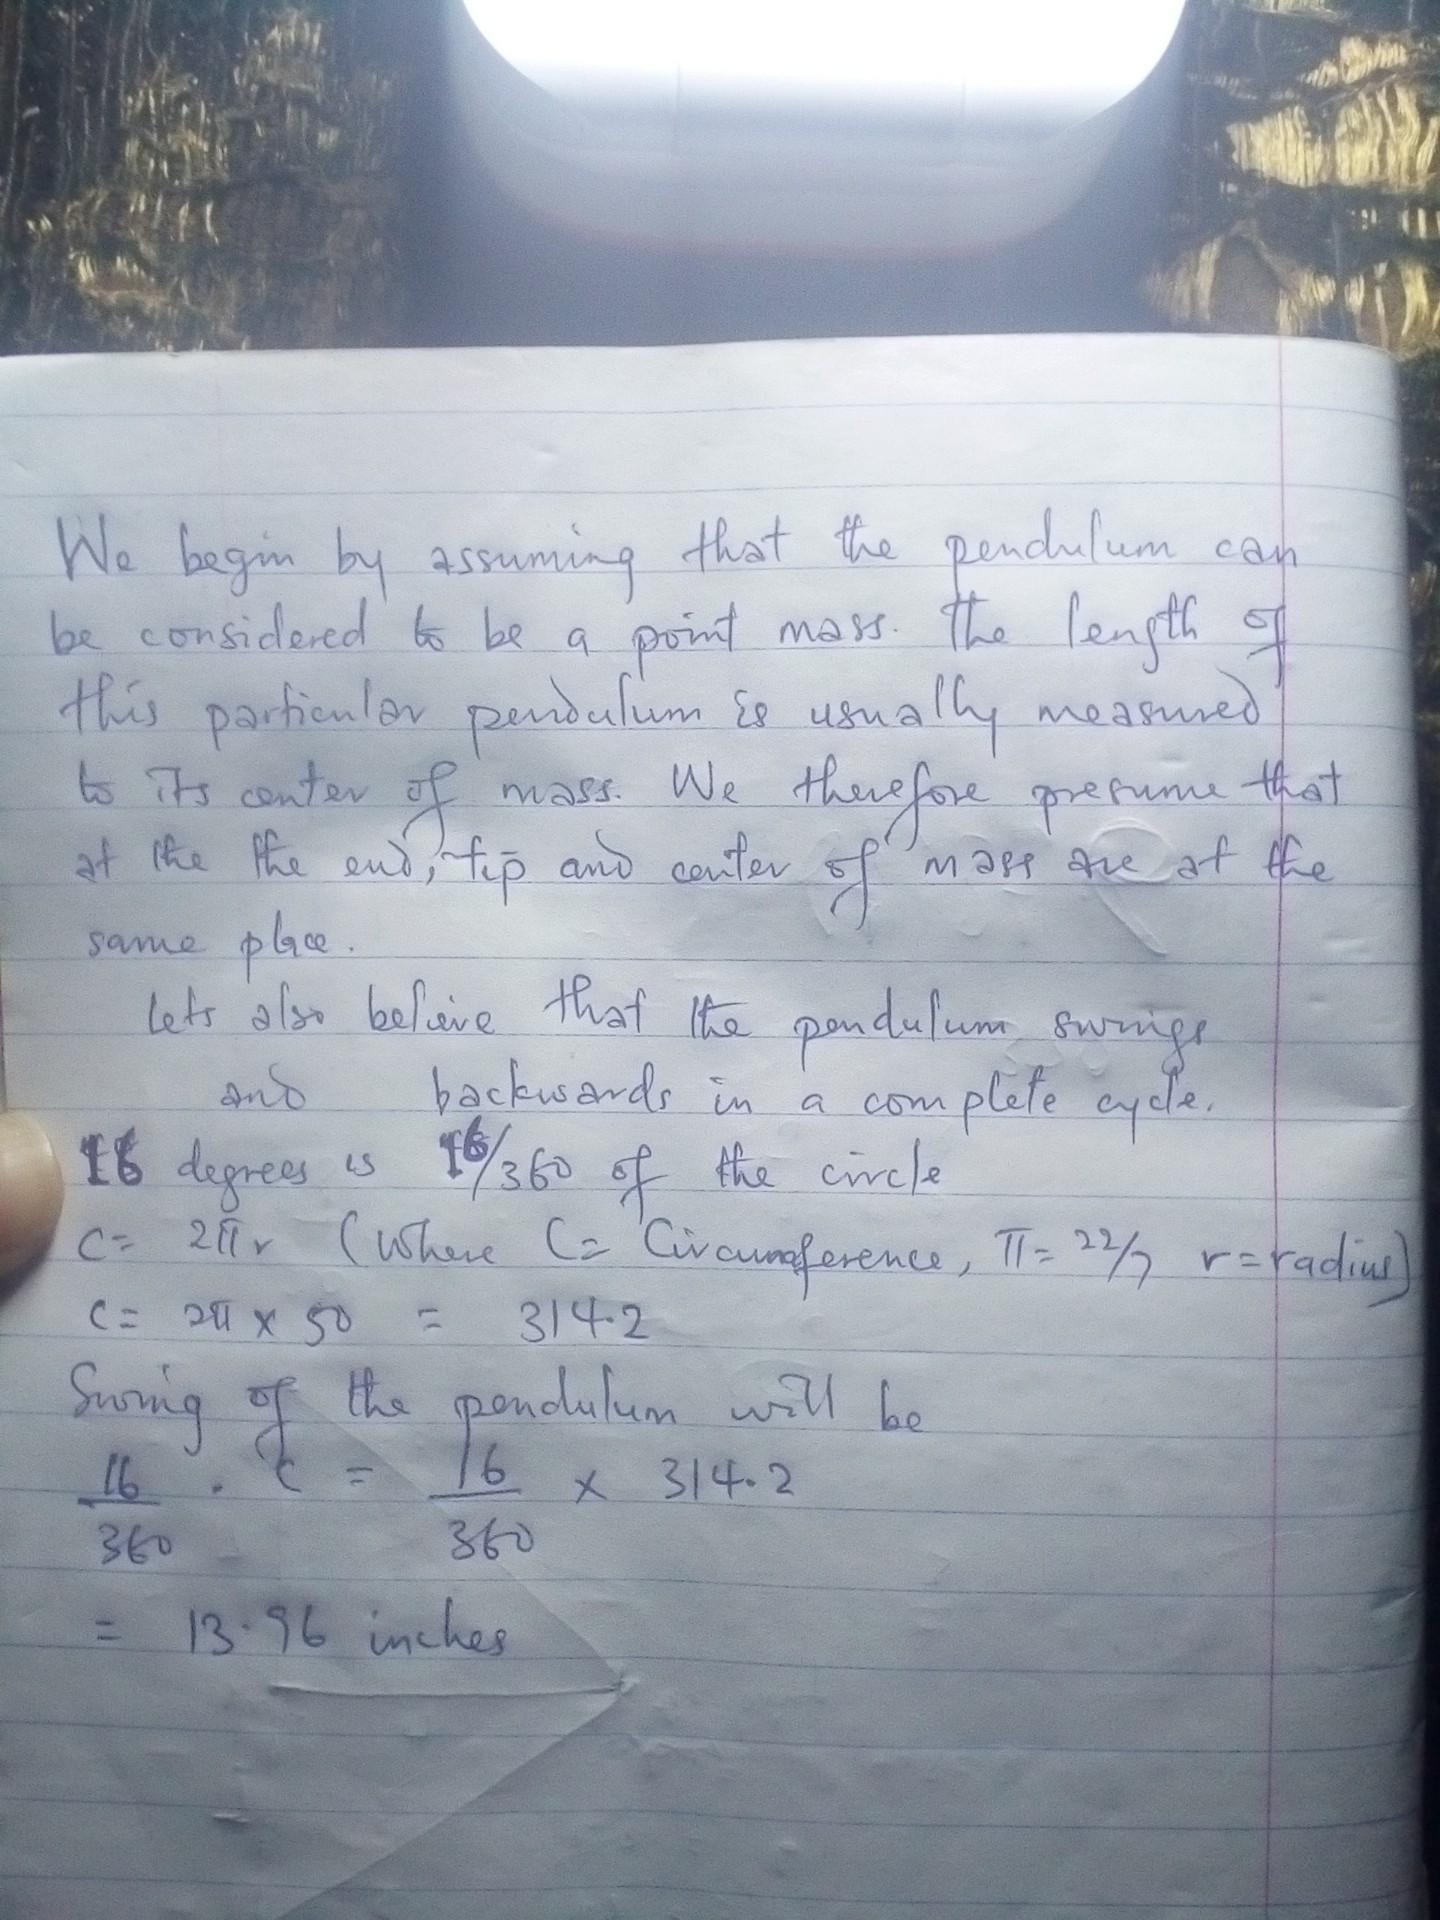 We begin by assuming that the pendulum can
be considered to be a point mass. The length of
this particular pendulum is usually measured
to its center of mass. We therefore presume that
at the the end, tip and center of mass are at the
same place.
Lets also believe that the pendulum swings
and backwards in a complete cycle.
16 degrees is 16/360 of the circle
C= 2πr (where C= Circumference, π= 22/7 r=radius)
C= 2π x 50 = 314.2
Swing of the pendulum will be
16/360 . C = 16/360 x 314.2
= 13.96 inches